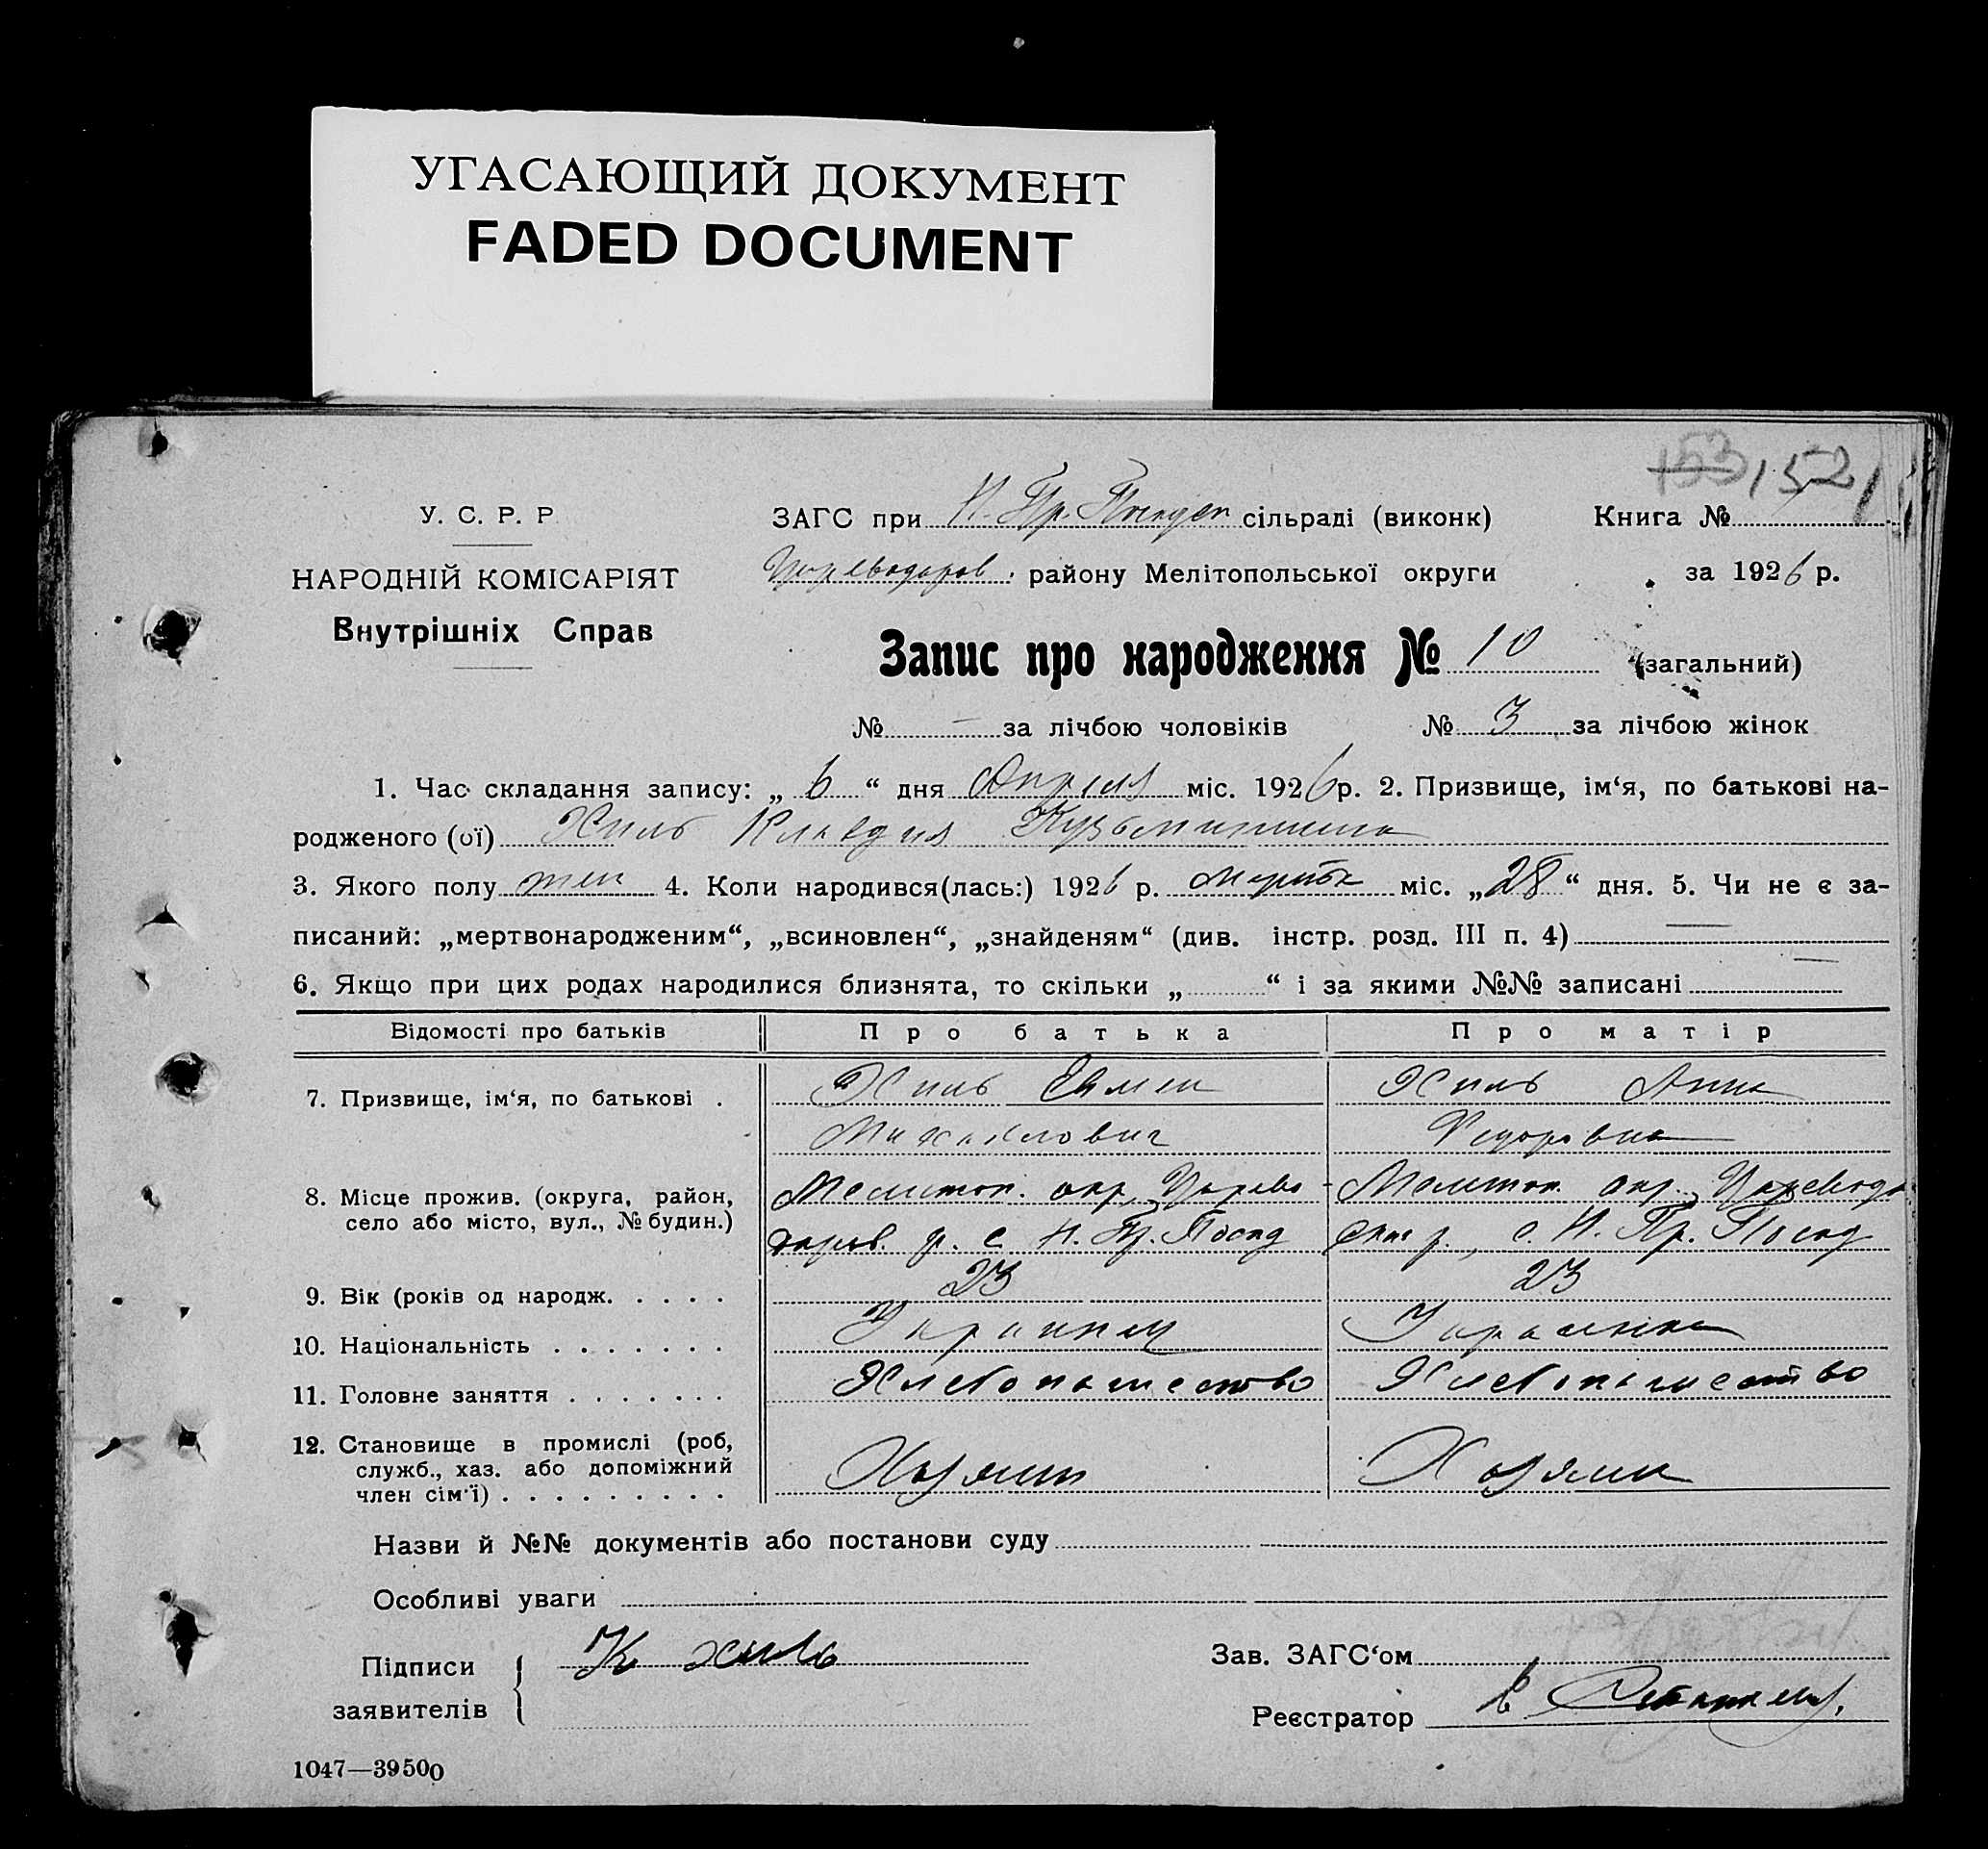 УГАСАЮЩИЙ ДОКУМЕНТ
FADED DOCUMENT
153 152
У. С. Р. Р.
НАРОДНІЙ КОМІСАРІЯТ
Внутрішніх Справ
ЗАГС при Н. Пр. сільраді (виконк) Книга №
району Мелітопольської округи за 1926 р.
Запис про народження № 10 (загальний)
№ — за лічбою чоловіків № 3 за лічбою жінок
1. Час складання запису: „ 6 “ дня Апреля міс. 1926 р. 2. Призвище, ім‘я, по батькові на-
родженого (ої) Хиль Клавдия
3. Якого полу жен 4. Коли народився(лась:) 1926 р. марта міс. „28“ дня. 5. Чи не є за-
писаний: „мертвонародженим“, „всиновлен“, „знайденям“ (див. інстр. розд. III п. 4) —
6. Якщо при цих родах народилися близнята, то скільки „ “ і за якими №№ записані —
Відомості про батьків Про батька Про матір
7. Призвище, ім‘я, по батькові . Хиль Хиль Анна
Михайлович Федоровна
8. Місце прожив. (округа, район, Мелитоп. окр. Царево- Мелитоп. окр.
село або місто, вул., № будин.) даров. р. с. Н. Пр. Посад р., с. Н. Пр. Посад
9. Вік (років од народж. . . . . 23 23
10. Національність . . . . . . . Украинец Украинка
11. Головне заняття . . . . . . . Хлебопашество Хлебопашество
12. Становище в промислі (роб,
служб., хаз. або допоміжний Хозяин
член сім‘ї) . . . . . . . . .
Назви й №№ документів або постанови суду
Особливі уваги
Підписи К хиль Зав. ЗАГС‘ом
заявителів Реєстратор
1047—39500